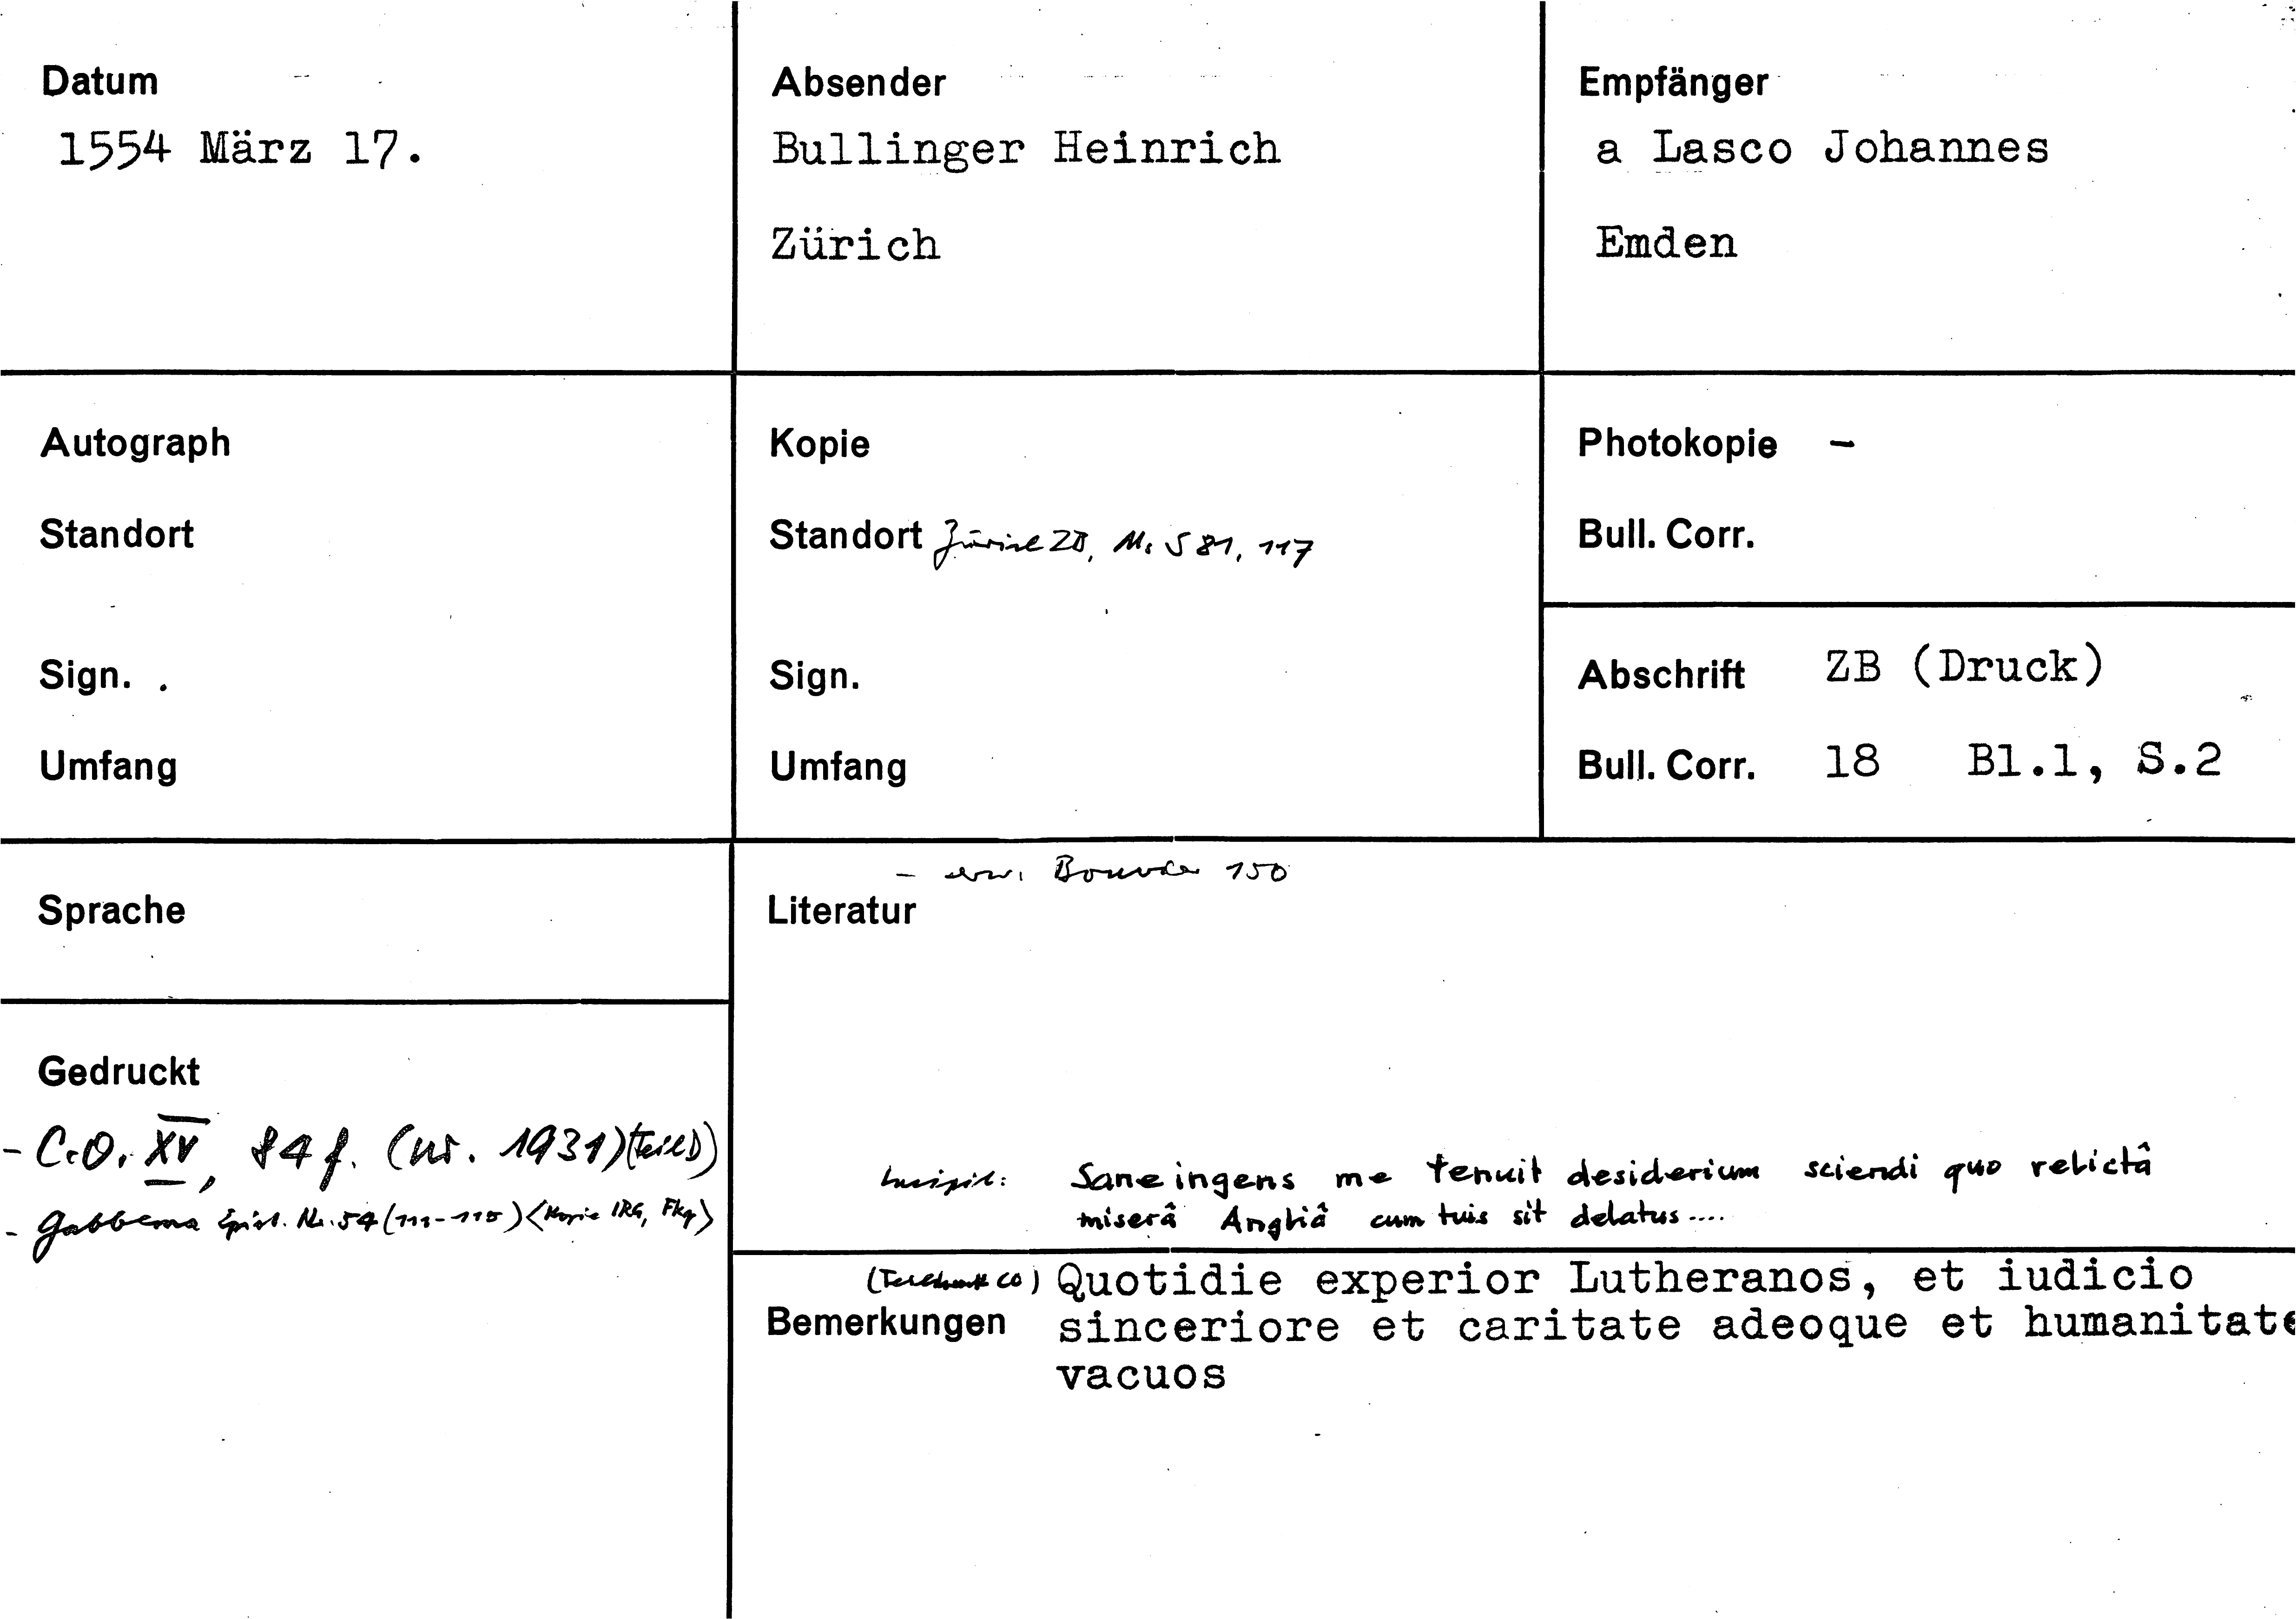 Datum
1554 März 17.
Absender
Bullinger Heinrich
Zürich
Empfänger
a Lasco Johannes
Emden
Autograph
Standort
Sign.
Umfang
Kopie
Standort Zürich ZB, Ms S 81, 117
Sign.
Umfang
Photokopie -
Bull. Corr.
Abschrift ZB (Druck)
Bull. Corr. 18 Bl.1, S.2
Sprache
- erw. 150
Literatur
Gedruckt
- C.O. XV, 84 f. (nr. 1931) (teild)
- Gabbema Epist. Nr. 54 (111-115) <Kopie IRG, Fkp>
Incipit: Sane ingens me tenuit desiderium sciendi quo relictâ
miserâ Angliâ cum tuis sit delatus....
(Teildruck CO) Quotidie experior Lutheranos, et iudicio
Bemerkungen sinceriore et caritate adeoque et humanitate
vacuos